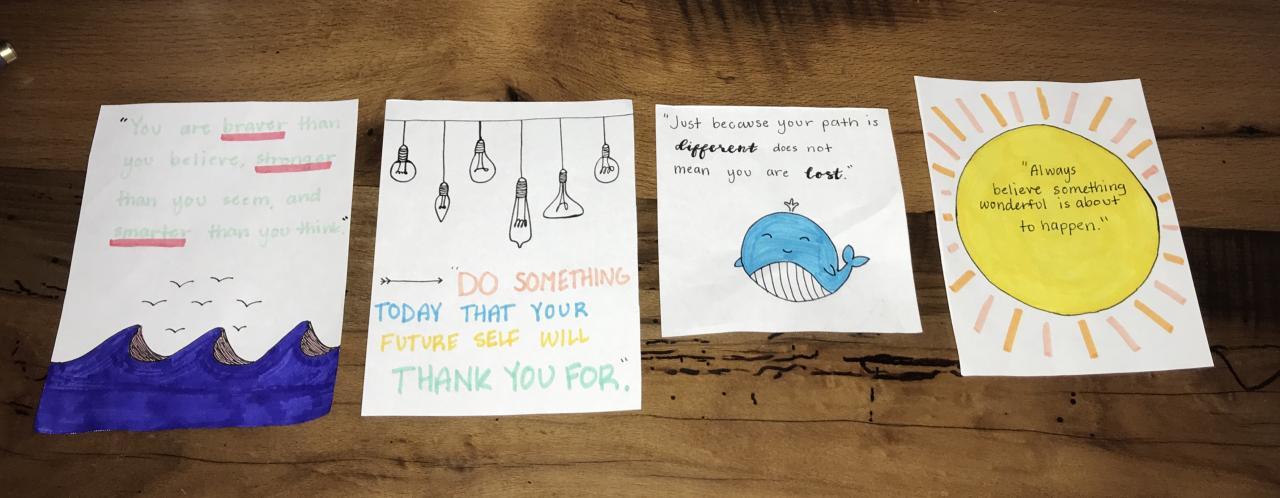 "You are braver than
you believe, stronger
than you seem, and
smarter than you think."
"DO SOMETHING
TODAY THAT YOUR
FUTURE SELF WILL
THANK YOU FOR."
"Just because your path is
different does not
mean you are lost."
"Always
believe something
wonderful is about
to happen."